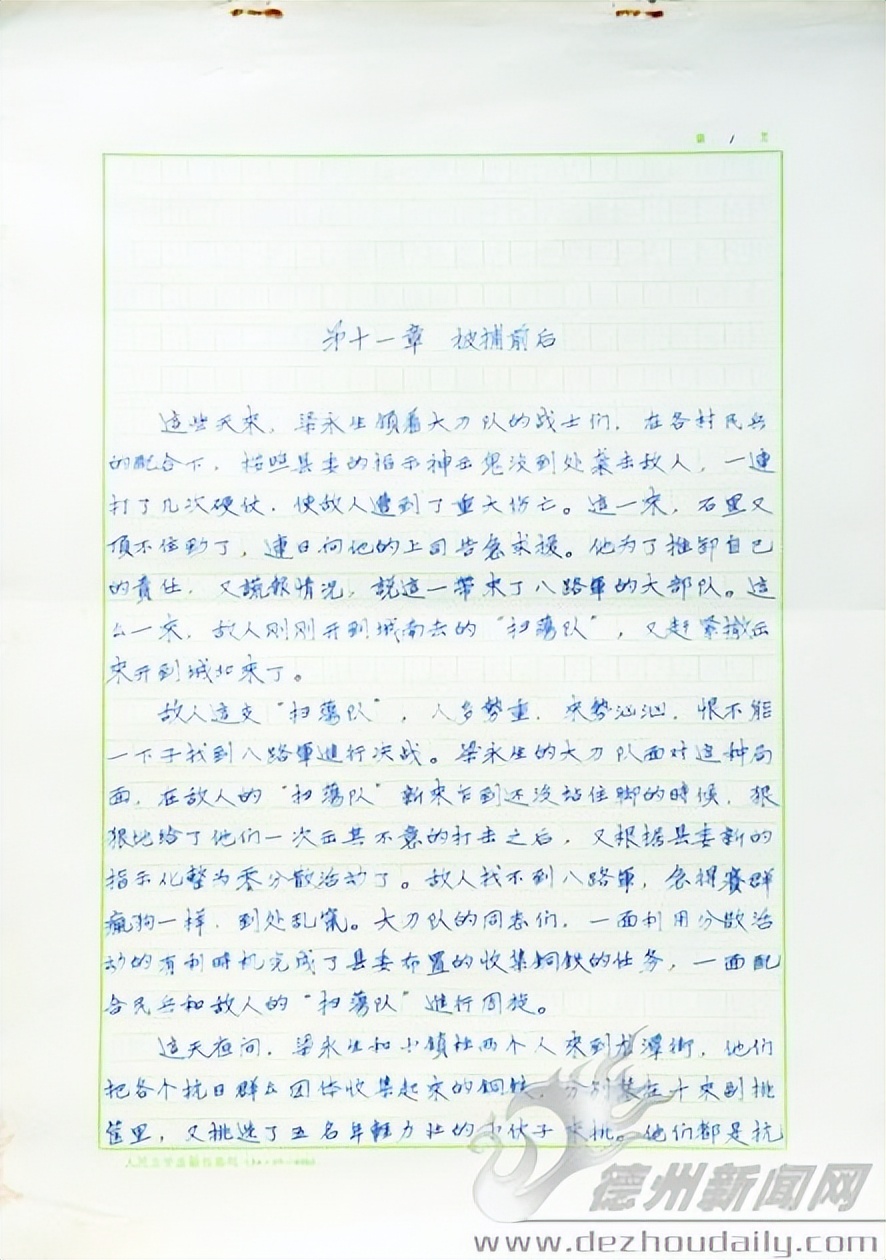 第 1 页
第十一章 被捕前后
这些天來，梁永生領着大刀队的战士们，在各村民兵
的配合下，按照县委的指示神出鬼没到处袭击敌人，一連
打了几次硬仗，使敌人遭到了重大伤亡。這一來，石黑又
頂不住劲了，連日向他的上司告急求援。他为了推卸自己
的責任，又謊报情况，説這一帶來了八路軍的大部队。这
么一來，敌人刚刚开到城南去的“扫蕩队”，又赶緊撤出
來开到城北來了。
敌人这支“扫蕩队”，人多勢重，來势汹汹，恨不能
一下子找到八路軍進行决战。梁永生的大刀队面对这种局
面，在敌人的“扫蕩队”新來乍到还没站住脚的時候，狠
狠地给了他们一次出其不意的打击之后，又根据县委新的
指示化整为零分散活动了。敌人找不到八路軍，急得賽群
瘋狗一样，到处乱窜。大刀队的同志们，一面利用分散活
动的有利時机完成了县委布置的收集銅鉄的任务，一面配
合民兵和敌人的“扫蕩队”進行周旋。
这天夜间，梁永生和小鎖柱两个人來到龙潭街，他们
把各个抗日群众团体收集起來的銅鉄，分别装在十來副挑
筐里，又挑选了五名年輕力壮的小伙子來挑。他们都是抗
人民文学出版社
德州新闻网
www.dezhoudaily.com